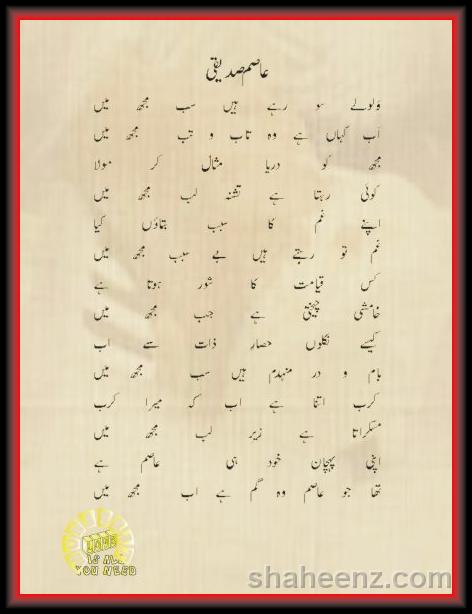 عاصم صدیقی
ولولے سو رہے ہیں سب مجھ میں
اب کہاں ہے وہ تاب و تب مجھ میں
مجھ کو دریا مثال کر مولا
کوئی رہتا ہے تشنہ لب مجھ میں
اپنے غم کا سبب بتاؤں کیا
غم تو رہتے ہیں بے سبب مجھ میں
کس قیامت کا شور ہوتا ہے
خامشی چیختی ہے جب مجھ میں
کیسے نکلوں حصارِ ذات سے اب
بام و در منہدم ہیں سب مجھ میں
کرب اتنا ہے اب کہ میرا کرب
مسکراتا ہے زیر لب مجھ میں
اپنی پہچان خود ہی عاصم ہے
تھا جو عاصم وہ گم ہے اب مجھ میں
LOVE
IS ALL
YOU NEED
shaheenz.com